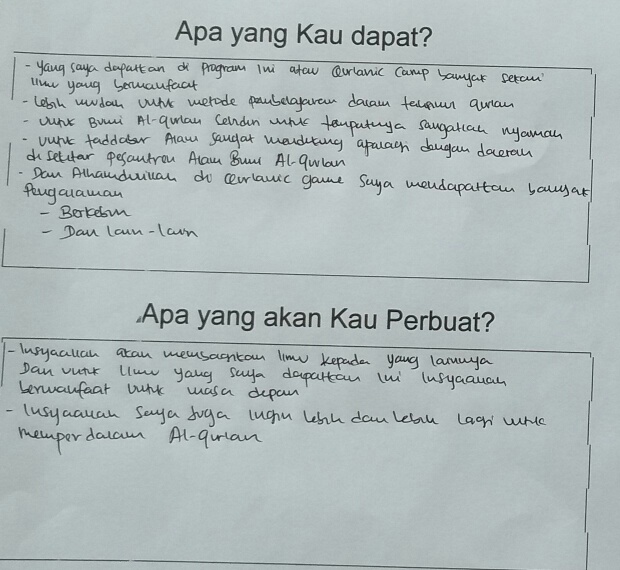 Apa yang Kau dapat?
- Yang saya dapatkan di Program ini atau Qur'anic Camp banyak sekali
ilmu yang bermanfaat
- lebih mudah untuk metode pembelajaran dalam Qur'an
- untuk Bumi Al-Qur'an untuk tempatnya sangatlah nyaman
- untuk taddabur Alam sangat mendukung apalagi dengan daerah
di sekitar pesantren Alam Bumi Al-Qur'an
- Dan Alhamdulillah di Qur'anic game saya mendapatkan banyak
Pengalaman
- Berkebun
- Dan lain-lain
Apa yang akan Kau Perbuat?
- Insyaallah akan membagikan ilmu kepada yang lainnya
Dan untuk ilmu yang saya dapatkan ini Insyaallah
bermanfaat untuk masa depan
- Insyaallah saya juga ingin lebih dan lebih lagi untuk
memperdalam Al-Qur'an